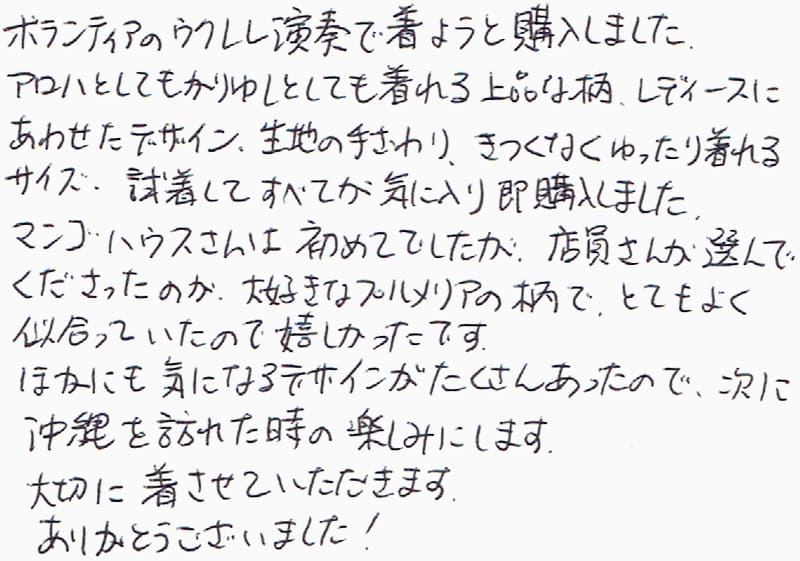 ボランティアのウクレレ演奏で着ようと購入しました.
アロハとしてもかりゆしとしても着れる上品な柄、レディースに
あわせたデザイン、生地の手ざわり、きつくなくゆったり着れる
サイズ. 試着してすべてが気に入り即購入しました.
マンゴハウスさんは初めてでしたが、店員さんが選んで
くださったのが、大好きなプルメリアの柄で、とてもよく
似合っていたので嬉しかったです.
ほかにも気になるデザインがたくさんあったので、次に
沖縄を訪れた時の楽しみにします.
大切に着させていただきます.
ありがとうございました!